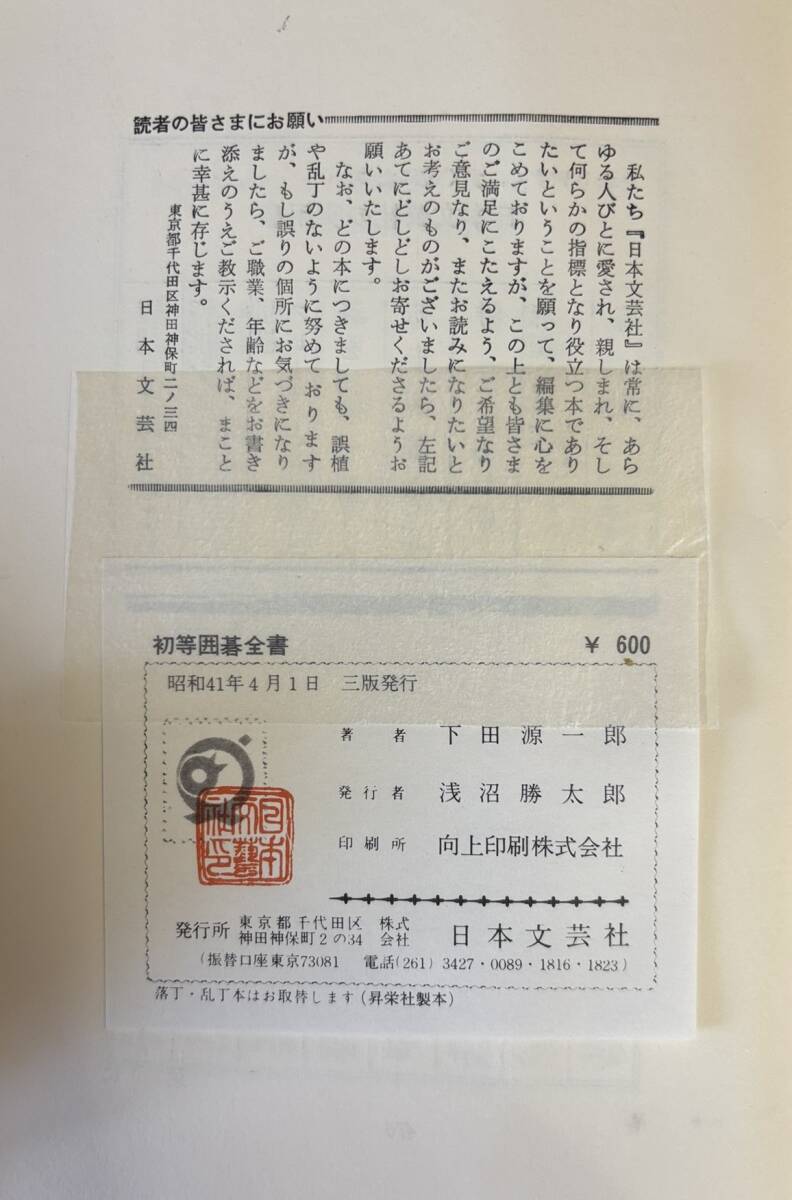 読者の皆さまにお願い
私たち『日本文芸社』は常に、あら
ゆる人びとに愛され、親しまれ、そし
て何らかの指標となり役立つ本であり
たいということを願って、編集に心を
こめておりますが、この上とも皆さま
のご満足にこたえるよう、ご希望なり
ご意見なり、またお読みになりたいと
お考えのものがございましたら、左記
あてにどしどしお寄せくださるようお
願いいたします。
なお、どの本につきましても、誤植
や乱丁のないように努めております
が、もし誤りの個所にお気づきになり
ましたら、ご職業、年齢などをお書き
添えのうえご教示くだされば、まこと
に幸甚に存じます。
東京都千代田区神田神保町二ノ三四
日本文芸社
初等囲碁全書 ¥ 600
昭和41年4月1日 三版発行
著者 下田源一郎
発行者 浅沼勝太郎
印刷所 向上印刷株式会社
発行所 東京都千代田区神田神保町2の34 株式会社 日本文芸社
(振替口座東京73081 電話(261) 3427・0089・1816・1823)
落丁・乱丁本はお取替します(昇栄社製本)
日本文藝社印